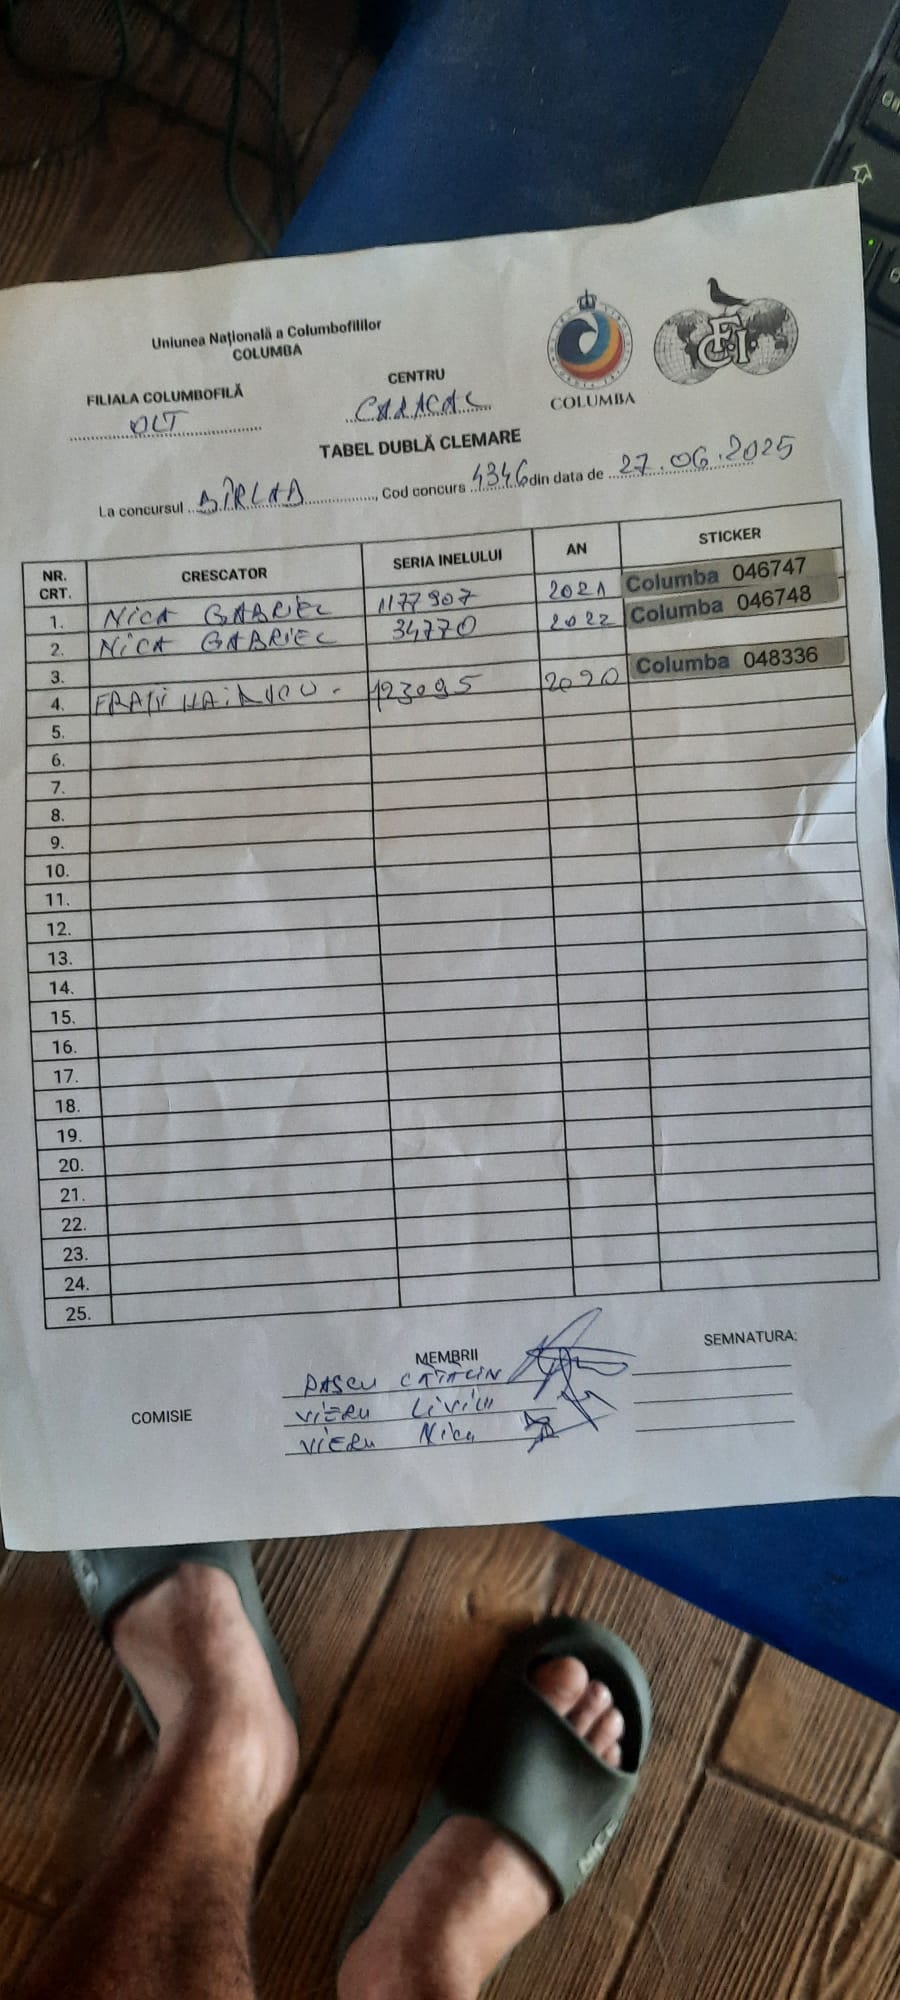 Uniunea Națională a Columbofililor
COLUMBA
FILIALA COLUMBOFILĂ
OLT
CENTRU
CARACAL
COLUMBA
FCI
TABEL DUBLĂ CLEMARE
La concursul BÎRLAD, Cod concurs 4346 din data de 27.06.2025
NR. CRT. CRESCATOR SERIA INELULUI AN STICKER
1. NICA GABRIEL 1177907 2021 Columba 046747
2. NICA GABRIEL 34770 2022 Columba 046748
3.
4. FRAȚII 123095 2020 Columba 048336
5.
6.
7.
8.
9.
10.
11.
12.
13.
14.
15.
16.
17.
18.
19.
20.
21.
22.
23.
24.
25.
MEMBRII
SEMNATURA:
COMISIE
PASCU CATALIN
VIERU LIVIU
VIERU Nicu